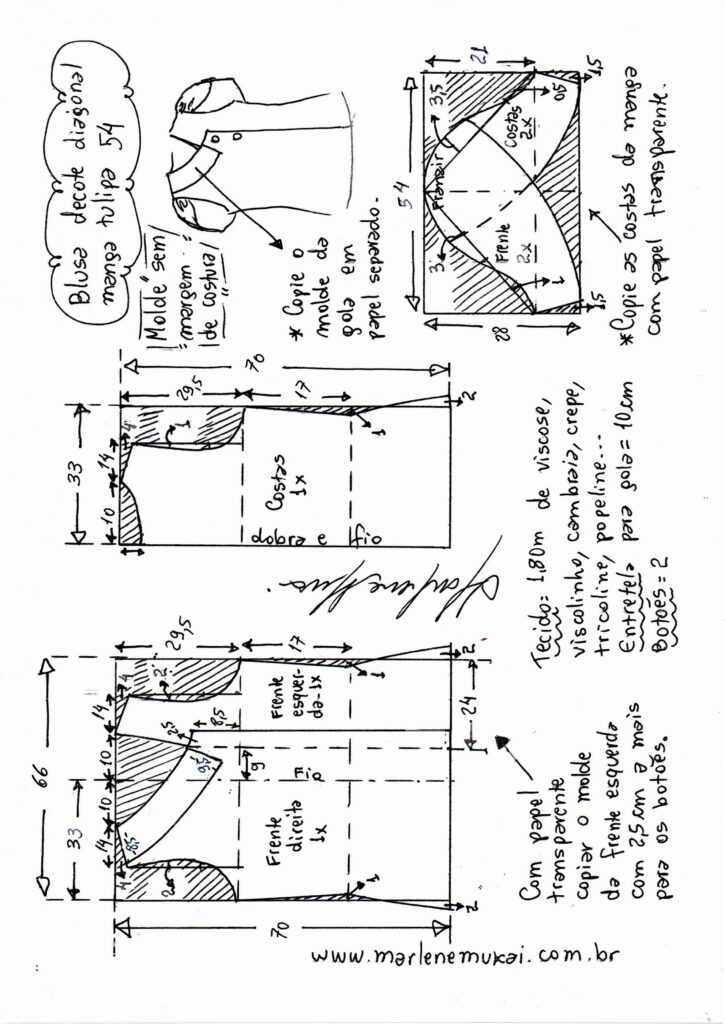 Blusa decote diagonal
manga tulipa 54
Molde sem
margem
de costura
* Copie o
molde da
gola em
papel separado.
54
21
28
3,5
3
Franzir
Costas
2x
Frente
2x
1
0,5
1,5
1,5
*Copie as costas da manga
com papel transparente.
70
29,5
17
33
14
10
4
1
Costas
1x
dobra e fio
1
2
Tecido= 1,80m de viscose,
viscolinho, cambraia, crepe,
tricoline, popeline...
Entretela para gola= 10cm
Botões= 2
66
33
14
10
10
14
29,5
17
4
2
4
2
2,5
8,5
9,5
8,5
9
24
Frente
esquer-
da-1x
Fio
Frente
direita
1x
1
2
1
2
70
Com papel
transparente
copiar o molde
da frente esquerda
com 2,5cm a mais
para os botões.
www.marlenemukai.com.br